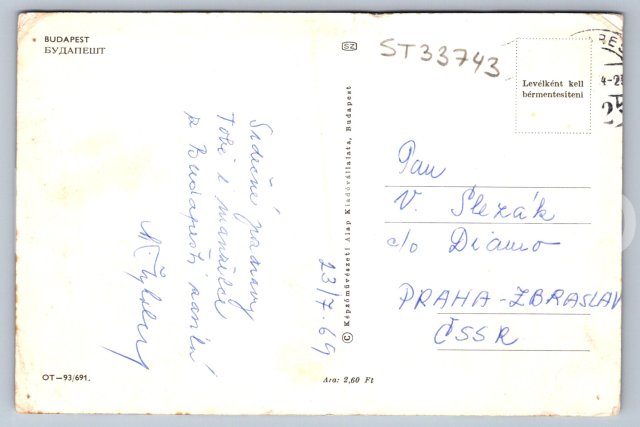 BUDAPEST
БУДАПЕШТ
SZ
ST33743
Levélként kell
bérmentesíteni
4-2
25
Srdečné pozdravy
Tobě i manželce
z Budapesti
23/7.69
© Képzőművészeti Alap Kiadóvállalata, Budapest
Pan
V. Slezák
c/o Diamo
PRAHA-ZBRASLAV
ČSSR
OT—93/691.
Ára: 2,60 Ft